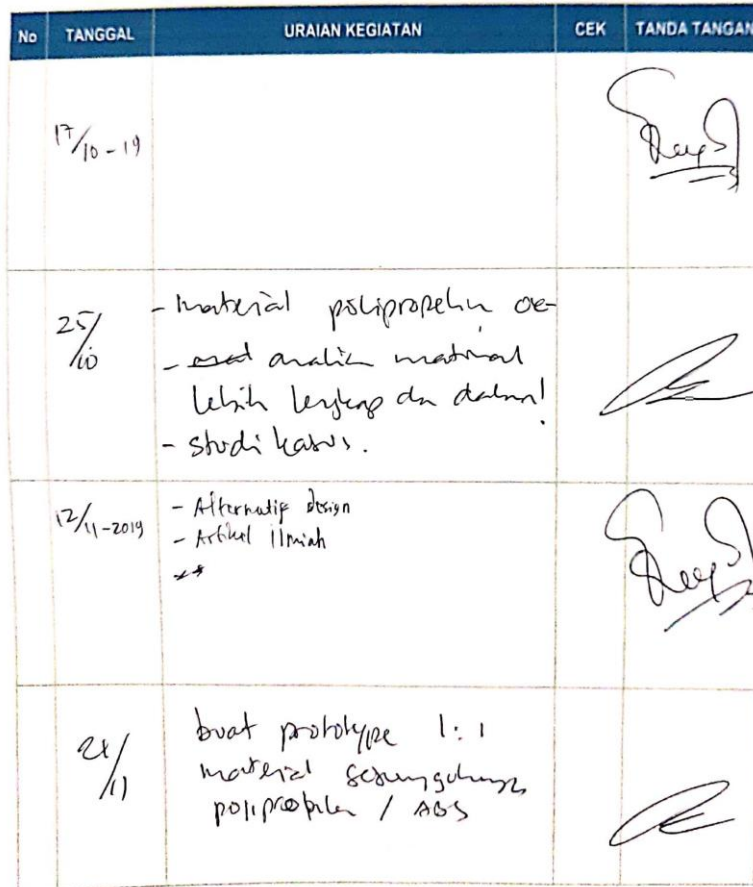 No TANGGAL URAIAN KEGIATAN CEK TANDA TANGAN
17/10-19
25/10
- material polipropelin oe-
- analisa material
lebih lengkap dan dalam!
- studi kasus.
12/11-2019
- Alternatif design
- Artikel ilmiah
11
buat prototype 1:1
material sesungguhnya
polipropilen / ABS